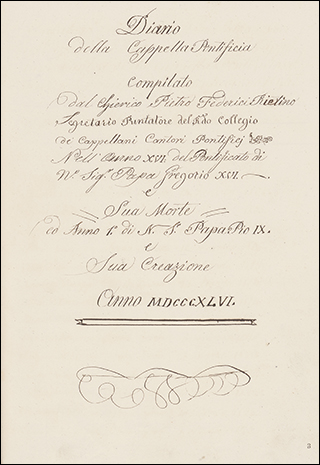 Diario
della Cappella Pontificia
Compilato
dal Chierico Pietro Federici
Segretario Puntatore del Collegio
de Cappellani Cantori Pontificj
Nell' Anno XVI. del Pontificato di
N. Sig. Papa Gregorio XVI.
e
Sua Morte
co Anno 1. di N. S. Papa Pio IX.
e
Sua Creazione
Anno MDCCCXLVI.